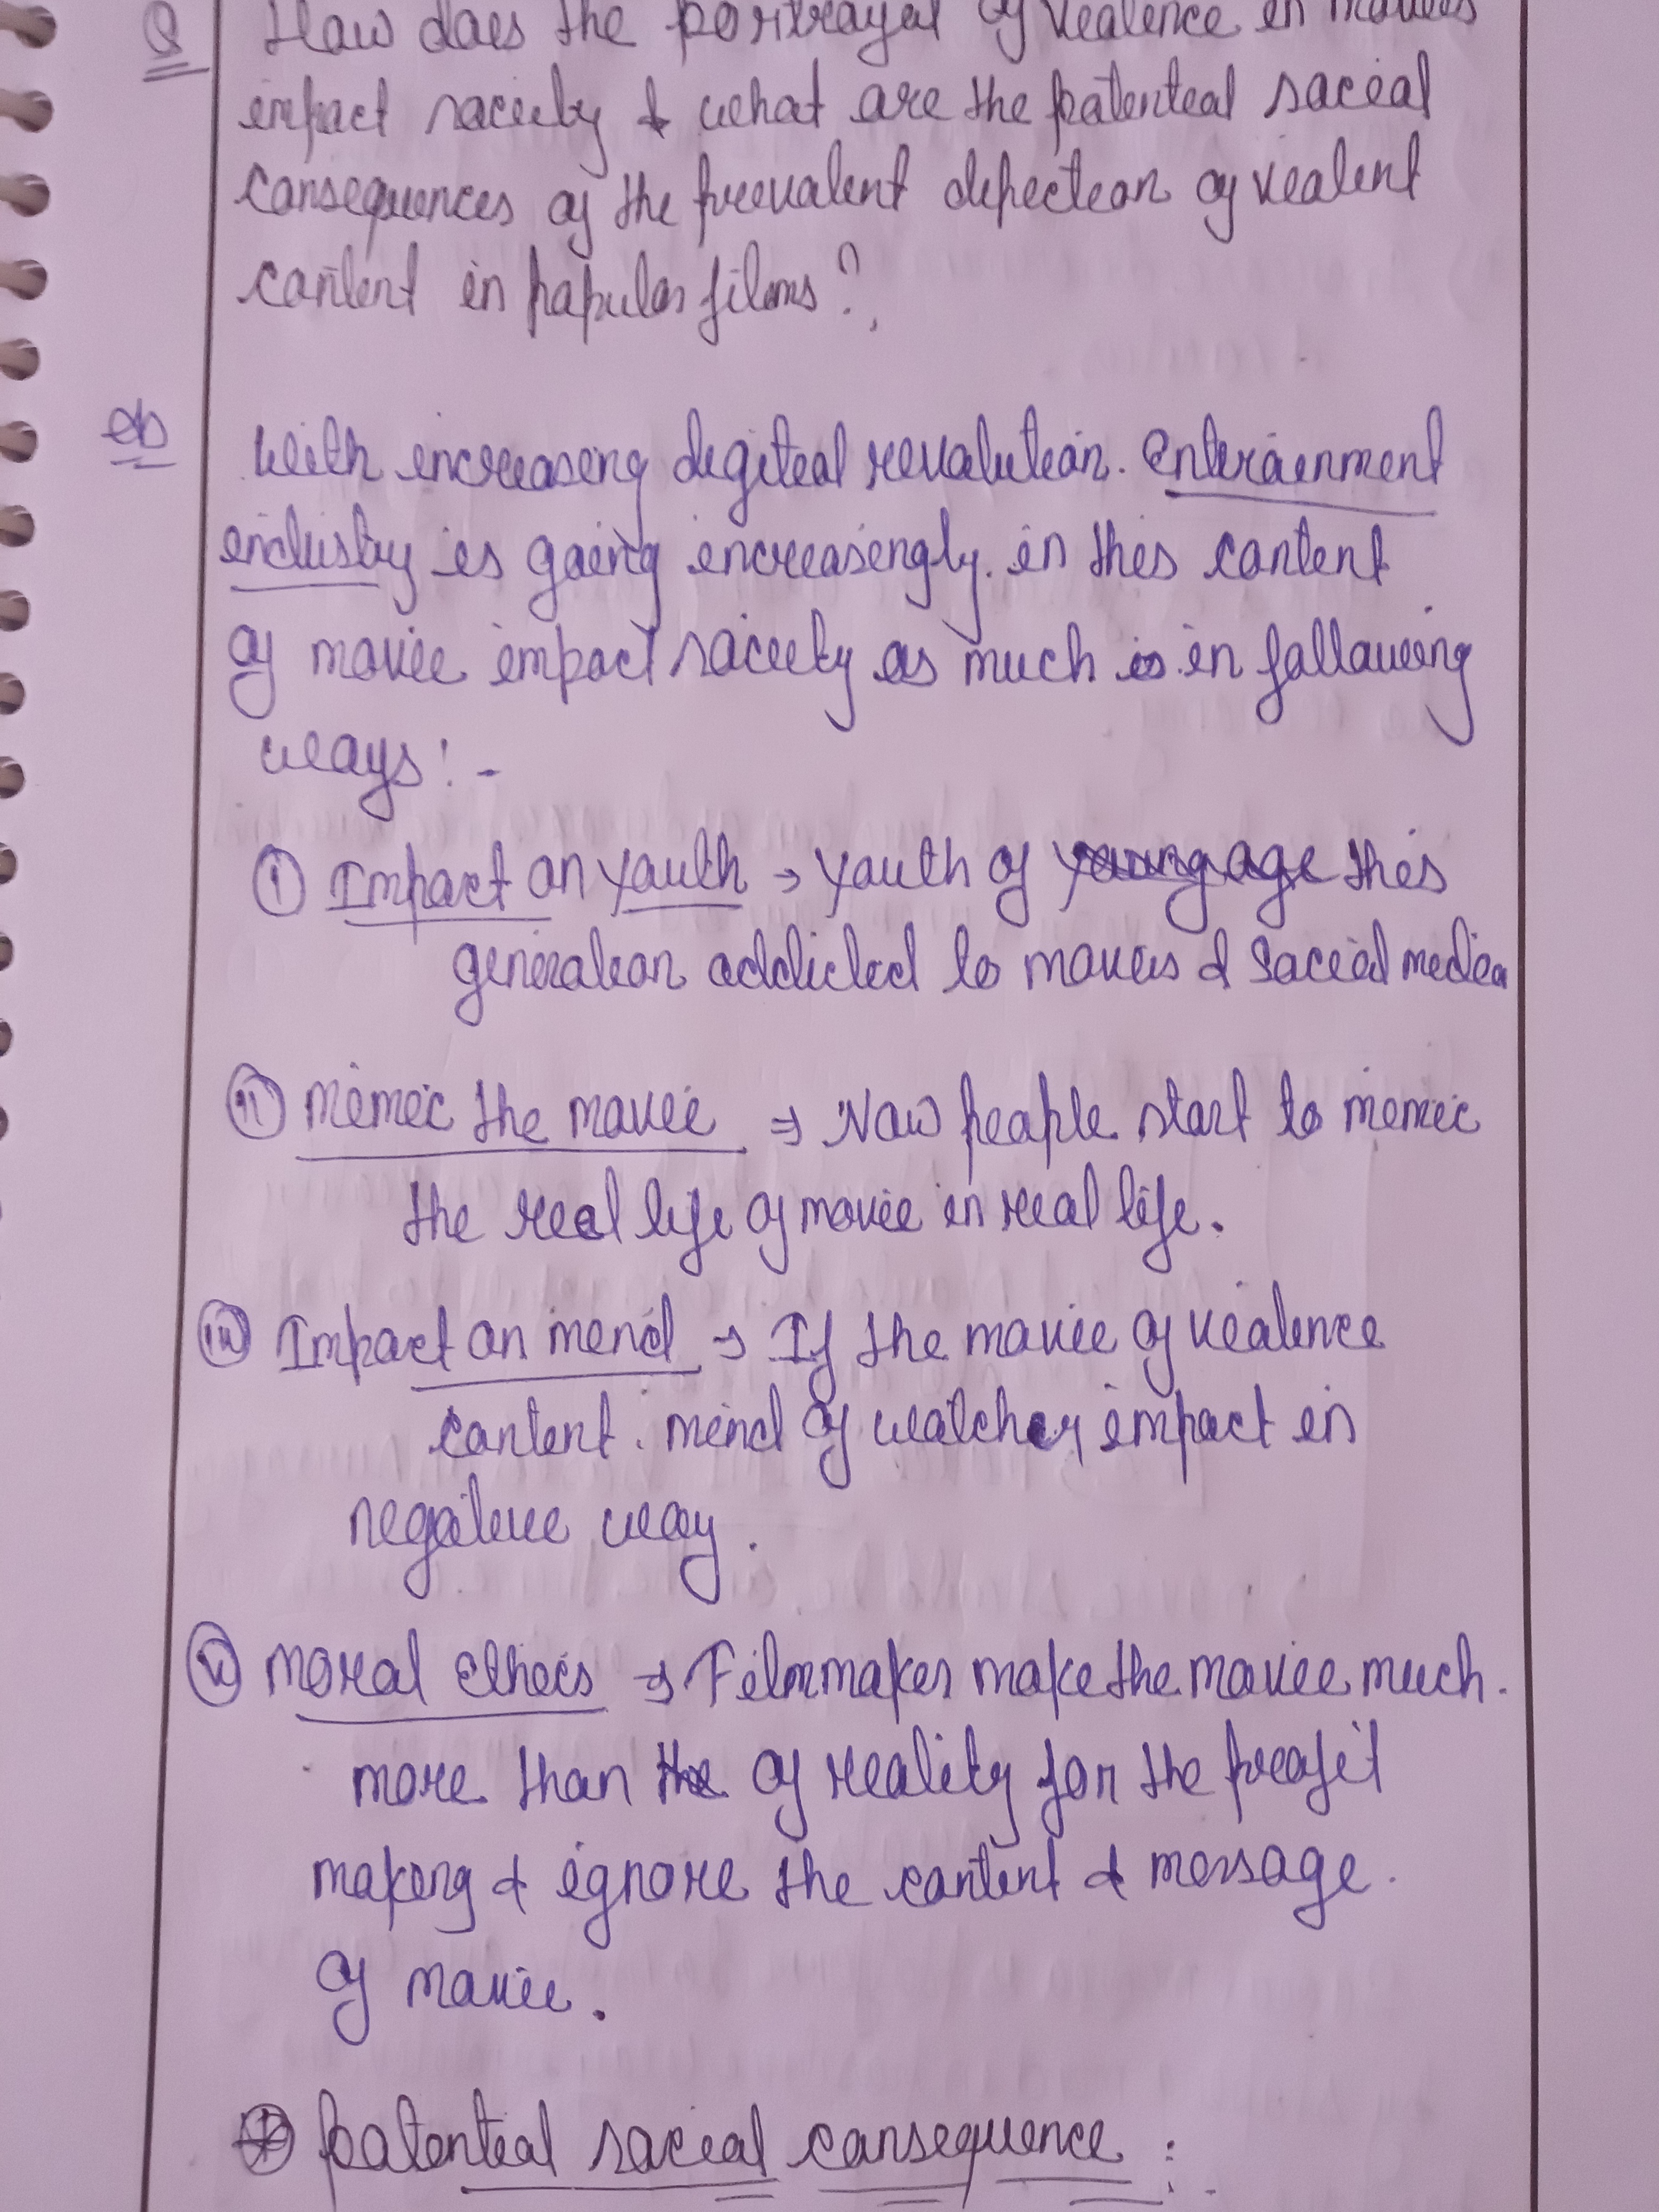 Q How does the portrayal of violence in movies
impact society & what are the potential social
consequences of the prevalent depiction of violent
content in popular films?
With increasing digital revolution. Enterainment
industry is going increasingly. in this content
of movie impact society as much is in following
ways:-
(i) Impact on youth → Youth of this
generation addicted to movies & Social media
(ii) mimic the movie ⇒ Now people start to mimic
the real life of movie in real life.
(iii) Impact on mind → If the movie of violence
content. mind of watcher impact in
negative way.
moral ethics → Filmmaker make the movie much.
more than of reality for the profit
making & ignore the content & message.
of movie.
potential social consequence :